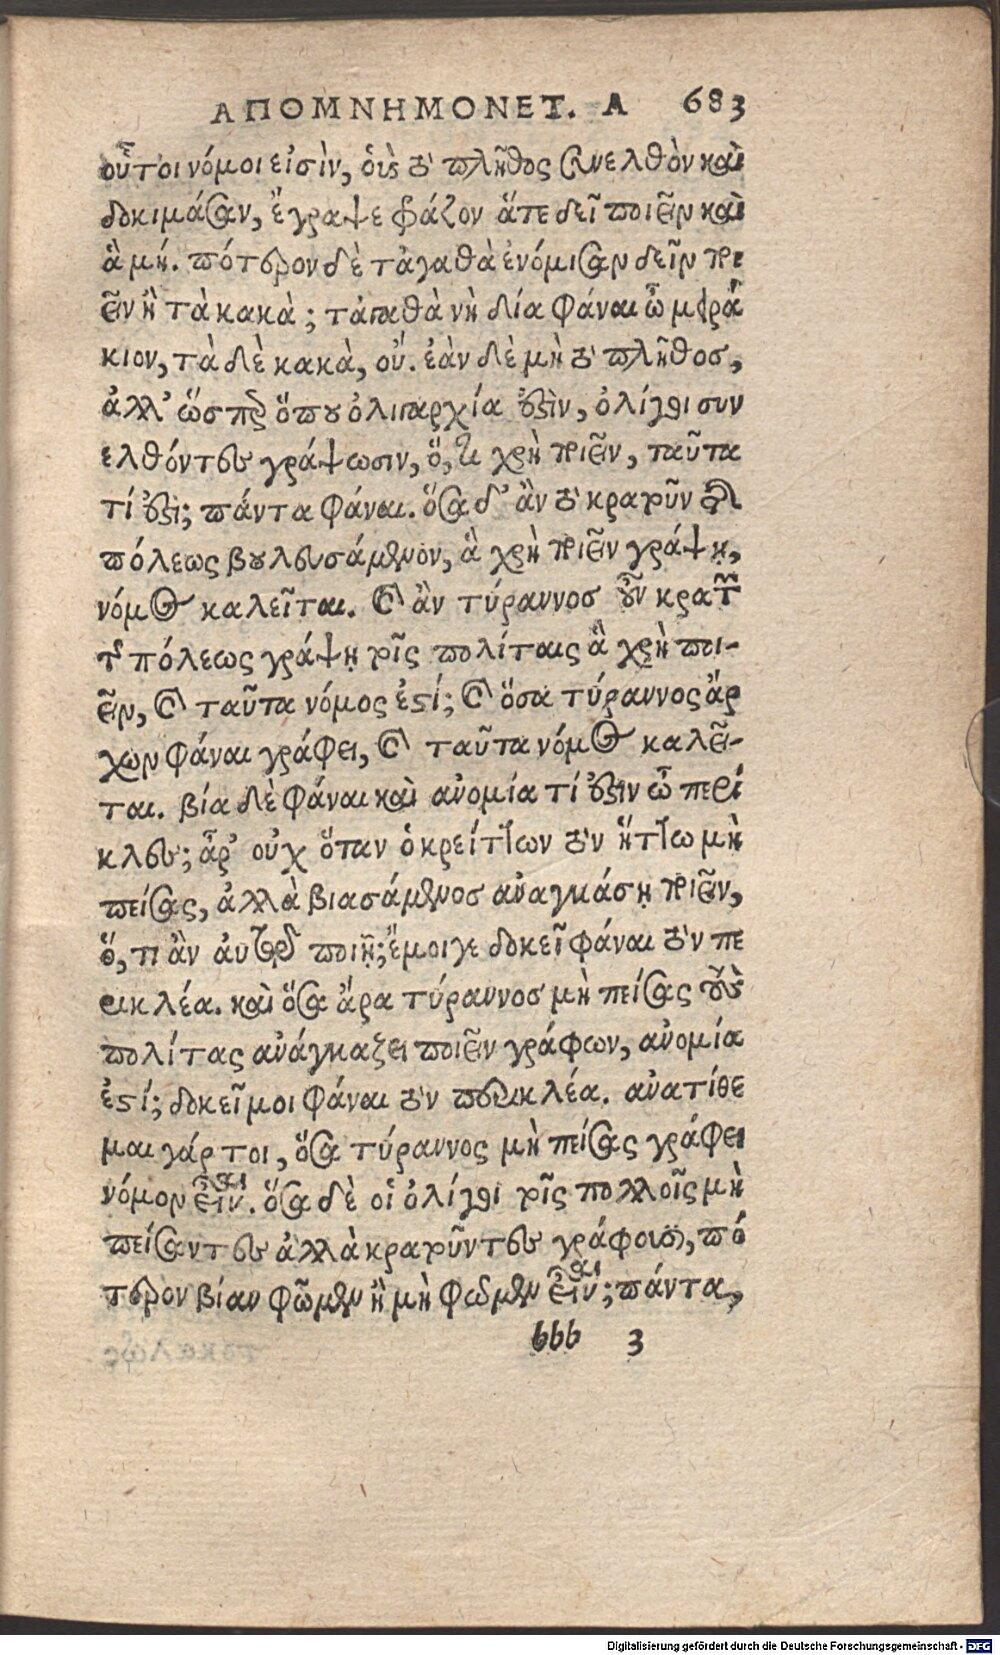 ΑΠΟΜΝΗΜΟΝΕΥ. Α 683
οὗτοι νόμοι εἰσὶν, οὓς τὸ πλῆθος συνελθὸν καὶ
δοκιμάσαν, ἔγραψε φράζον ἅτε δεῖ ποιεῖν καὶ
ἃ μή. πότερον δὲ τἀγαθὰ ἐνόμισαν δεῖν ποι
εῖν ἢ τὰ κακὰ; τἀγαθὰ νὴ δία φάναι ὦ μειρά
κιον, τὰ δὲ κακὰ, οὔ. ἐὰν δὲ μὴ τὸ πλῆθοσ,
ἀλλ' ὥσπερ ὅπου ὀλιγαρχία ἐστὶν, ὀλίγοι συν
ελθόντες γράψωσιν, ὅ, τι χρὴ ποιεῖν, ταῦτα
τί ἐστι; πάντα φάναι. ὅσα δ' ἂν τὸ κρατοῦν τῆς
πόλεως βουλευσάμενον, ἃ χρὴ ποιεῖν γράψῃ,
νόμος καλεῖται. καὶ ἂν τύραννοσ οὖν κρατῶν
τῆς πόλεως γράψῃ τοῖς πολίταις ἃ χρὴ ποι-
εῖν, καὶ ταῦτα νόμος ἐστί; καὶ ὅσα τύραννος ἄρ
χων φάναι γράφει, καὶ ταῦτα νόμος καλεῖ-
ται. βία δὲ φάναι καὶ ἀνομία τί ἐστιν ὦ περί
κλεις; ἆρ' οὐχ ὅταν ὁ κρείττων τὸν ἥττω μὴ
πείσας, ἀλλὰ βιασάμενοσ ἀναγκάσῃ ποιεῖν,
ὅ, τι ἂν αὐτῷ ποιῇ; ἔμοιγε δοκεῖ φάναι τὸν πε
ρικλέα. καὶ ὅσα ἄρα τύραννοσ μὴ πείσας τοὺς
πολίτας ἀνάγκαζει ποιεῖν γράφων, ἀνομία
ἐστί; δοκεῖ μοι φάναι τὸν περικλέα. ἀνατίθε
μαι γάρ τοι, ὅσα τύραννος μὴ πείσας γράφει
νόμον εἶναι. ὅσα δὲ οἱ ὀλίγοι τοῖς πολλοῖς μὴ
πείσαντες ἀλλὰ κρατοῦντες γράφουσι, πό
τερον βίαν φῶμεν ἢ μὴ φῶμεν εἶναι; πάντα,
bbb 3
Digitalisierung gefördert durch die Deutsche Forschungsgemeinschaft - DFG